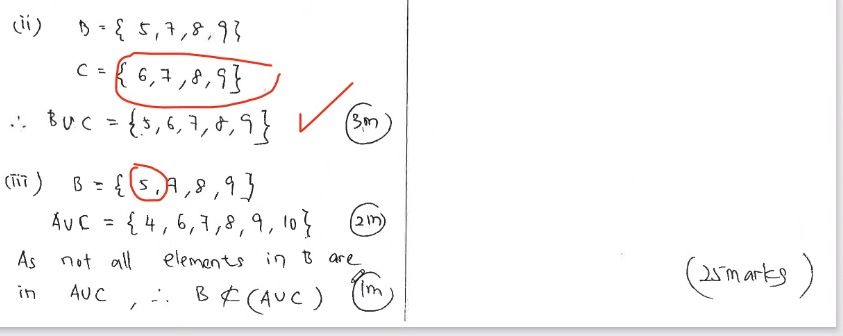 (ii) B = { 5, 7, 8, 9}
C = { 6, 7, 8, 9}
∴ B ∪ C = {5, 6, 7, 8, 9} (3m)
(iii) B = { 5, 7, 8, 9 }
A ∪ C = { 4, 6, 7, 8, 9, 10} (2m)
As not all elements in B are
in A ∪ C , ∴ B ⊄ (A ∪ C ) (1m)
(25 marks)